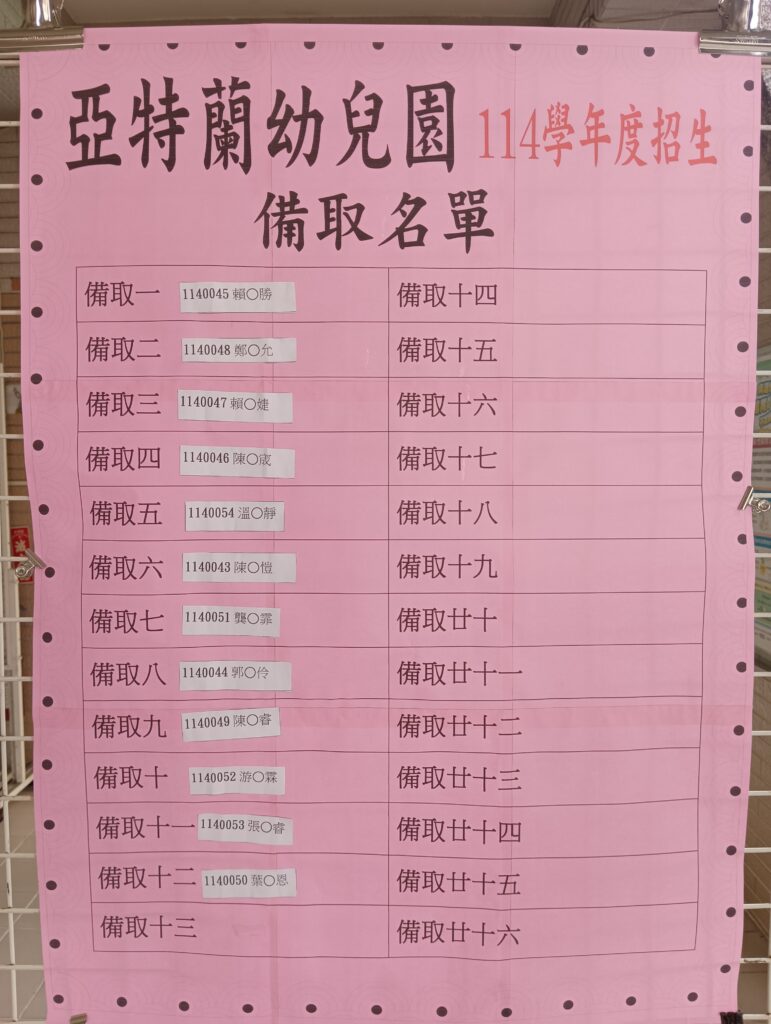 亞特蘭幼兒園 114學年度招生
備取名單
備取一 1140045 賴○勝 備取十四
備取二 1140048 鄭○允 備取十五
備取三 1140047 賴○婕 備取十六
備取四 1140046 陳○宬 備取十七
備取五 1140054 溫○靜 備取十八
備取六 1140043 陳○愷 備取十九
備取七 1140051 龔○霏 備取廿十
備取八 1140044 郭○伶 備取廿十一
備取九 1140049 陳○睿 備取廿十二
備取十 1140052 游○霖 備取廿十三
備取十一 1140053 張○睿 備取廿十四
備取十二 1140050 葉○恩 備取廿十五
備取十三 備取廿十六